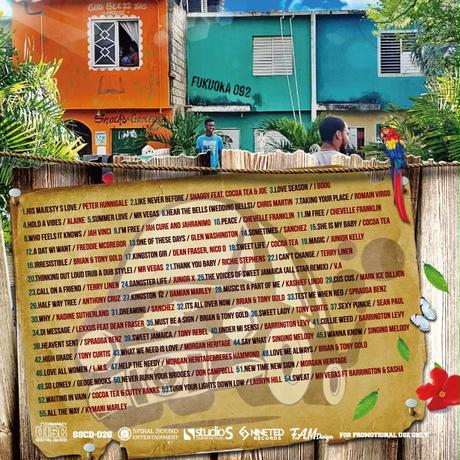 GOD BLESS THIS
FUKUOKA 092
1.HIS MAJESTY'S LOVE / PETER HUNNIGALE 2.LIKE NEVER BEFORE / SHAGGY FEAT. COCOA TEA & JOE 3.LOVE SEASON / J BOOG
4.HOLD A VIBES / ALAINE 5.SUMMER LOVE / MR VEGAS 6.HEAR THE BELLS (WEDDING BELLS) / CHRIS MARTIN 7.TAKING YOUR PLACE / ROMAIN VIRGO
8.WHO FEELS IT KNOWS / JAH VINCI 9.I'M FREE / JAH CURE AND JAHRANIMO 10.PEACE / CHEVELLE FRANKLIN 11.I'M FREE / CHEVELLE FRANKLIN
12.A DAT WI WANT / FREDDIE MCGREGOR 13.ONE OF THESE DAYS / GLEN WASHINGTON 14.SOMETIMES / SANCHEZ 15.SHE IS MY BABY / COCOA TEA
16.IRRESISTIBLE / BRIAN & TONY GOLD 17.KINGSTON GIR / DEAN FRASER, NICO D 18.SWEET LIFE / COCOA TEA 19.MAGIC / JUNIOR KELLY
20.THINKING OUT LOUD (RUB A DUB STYLE) / MR VEGAS 21.THANK YOU BABY / RICHIE STEPHENS 22.I CAN'T CHANGE / TERRY LINEN
23.CALL ON A FRIEND / TERRY LINEN 24.GANGSTER LIFE / JUNIOR X 25.THE VOICES OF SWEET JAMAICA (ALL STAR REMIX) / V.A
26.HALF WAY TREE / ANTHONY CRUZ 27.KINGSTON 12 / DAMIAN MARLEY 28.MUSIC IS A PART OF ME / KASHIEF LINDO 29.CUS CUS / MARK ICE DILLIEN
30.WHY / NADINE SUTHERLAND 31.DREAMING / SANCHEZ 32.ITS ALL OVER NOW / BRIAN & TONY GOLD 33.TEST ME WHEN YES / SPRAGGA BENZ
34.DI MESSAGE / LEXXUS FEAT DEAN FRASER 35.MUST BE A SIGN / BRIAN & TONY GOLD 36.SWEET LADY / TONY CURTIS 37.SEXY PUNKIE / SEAN PAUL
38.HEAVEN SENT / SPRAGGA BENZ 39.SWEET JAMAICA / TONY REBEL 40.UNDER MI SENSI / BARRINGTON LEVY 41.COLLIE WEED / BARRINGTON LEVY
42.HIGH GRADE / TONY CURTIS 43.WHAT WE NEED IS LOVE / MORGAN HERITAGE 44.SAY WHAT / SINGING MELODY 45.I WANNA KNOW / SINGING MELODY
46.LOVE ALL WOMEN / L.M.S. 47.HELP THE NEEDY / MORGAN HERITAGEBERBERES HAMMOND 48.LOVE ME ALWAYS / BRIAN & TONY GOLD
49.SO LONELY / GEOGE NOOKS 50.NEVER BURN YOUR BRIDGES / DON CAMPBELL 51.NEW TIME NEW SIGN / MORGAN HERITAGE
52.WAITING IN VAIN / COCOA TEA & CUTTY RANKS 53.TURN YOUR LIGHTS DOWN LOW / LAURYN HILL 54.SWEAT / MR VEGAS FT BARRINGTON & SASHA
55.ALL THE WAY / KYMANI MARLEY
COMPACT disc DIGITAL AUDIO SSCD-026 SPIRAL SOUND ENTERTAINMENT STUDIO S NINETED RECORDS F.A.M Design FOR PROMOTIONAL USE ONLY